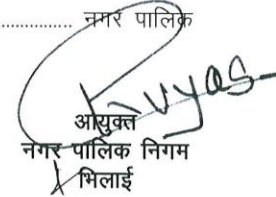 .............. नगर पालिक
आयुक्त
नगर पालिक निगम
भिलाई